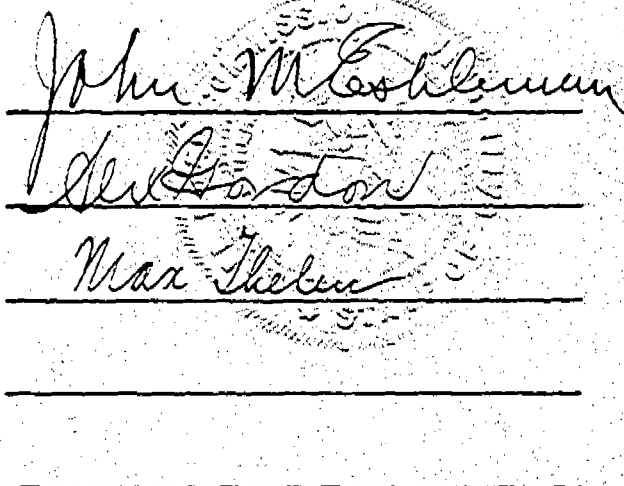 John M Eshleman
Alex Gordon
Max Thelen